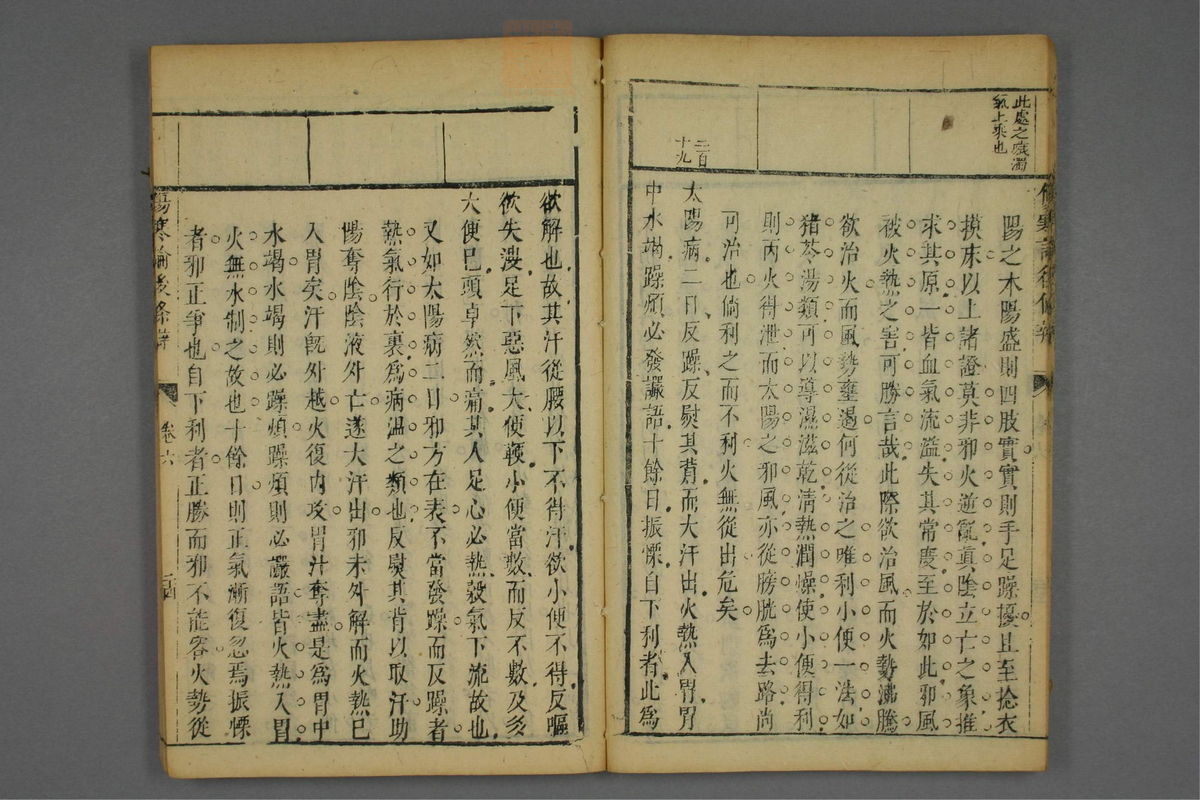 此處之痰濁
氣上乘也
傷寒論後條辨
陽之本陽盛則四肢實實則手足躁擾且至捻衣
摸床以上諸證莫非邪火逆竄真陰立亡之象推
求其原一皆血氣流溢失其常度至於如此邪風
被火熱之害可勝言哉此際欲治風而火勢沸騰
欲治火而風勢壅遏何從治之唯利小便一法如
猪苓湯類可以導濕滋乾清熱潤燥使小便得利
則丙火得泄而太陽之邪風亦從膀胱為去路尚
可治也倘利之而不利火無從出危矣
二百
十九
太陽病二日反躁反熨其背而大汗出火熱入胃胃
中水竭躁煩必發讝語十餘日振慄自下利者此為
欲解也故其汗從腰以下不得汗欲小便不得反嘔
欲失溲足下惡風大便鞕小便當數而反不數及多
大便已頭卓然而痛其人足心必熱穀氣下流故也
又如太陽病二日邪方在表不當發躁而反躁者
熱氣行於裏為病溫之類也反熨其背以取汗助
陽奪陰陰液外亡遂大汗出邪未外解而火熱已
入胃矣汗旣外越火復內攻胃汁奪盡是為胃中
水竭水竭則必躁煩躁煩則必讝語皆火熱入胃
火無水制之故也十餘日則正氣漸復忽焉振慄
者邪正爭也自下利者正勝而邪不能容火勢從
傷寒論後條辨
卷六
二四